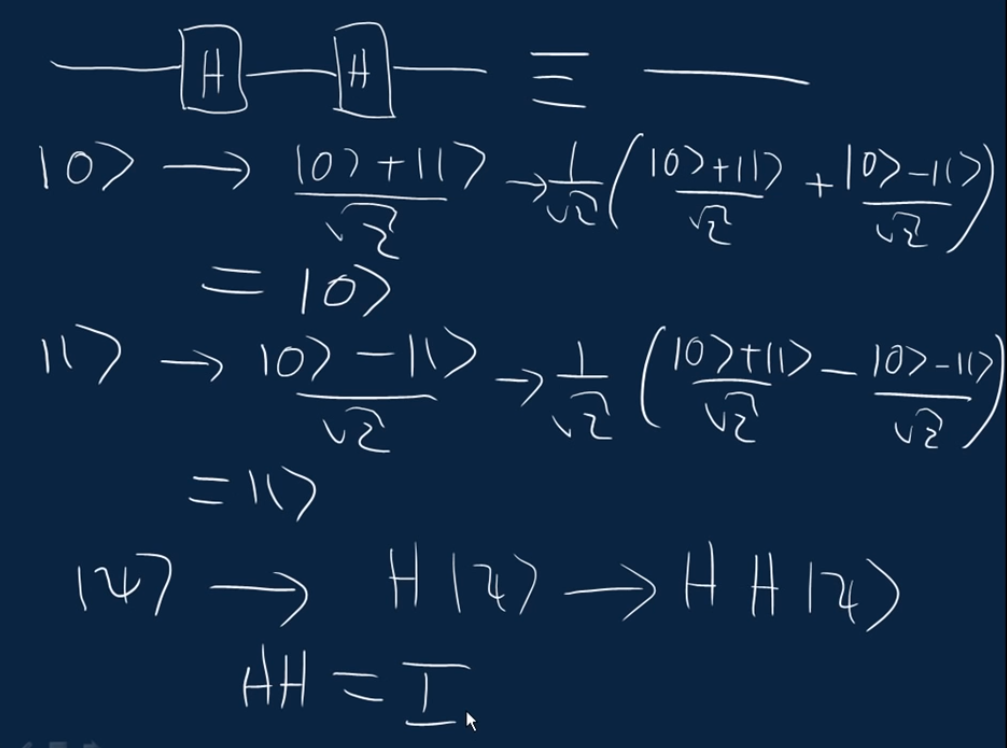 H H ≡
|0⟩ → |0⟩+|1⟩/√2 → 1/√2 (|0⟩+|1⟩/√2 + |0⟩-|1⟩/√2)
= |0⟩
|1⟩ → |0⟩-|1⟩/√2 → 1/√2 (|0⟩+|1⟩/√2 - |0⟩-|1⟩/√2)
= |1⟩
|ψ⟩ → H|ψ⟩ → HH|ψ⟩
HH = I